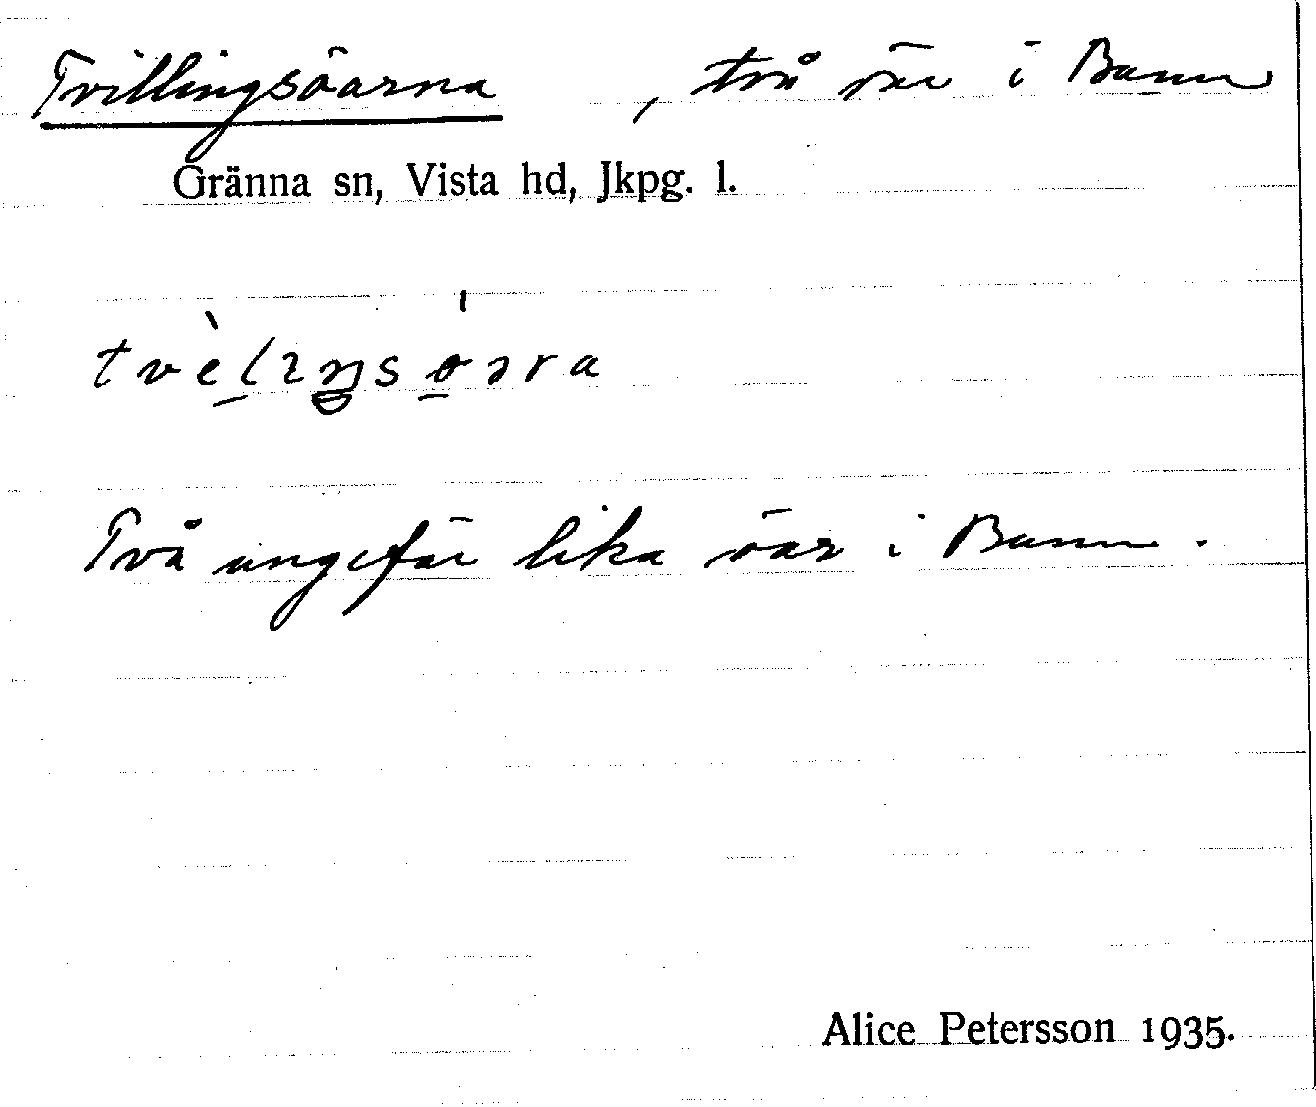 Tvillingsöarna, två öar i Bunn
Gränna sn, Vista hd, Jkpg. l.
tvèlıŋsøəra
Två ungefär lika öar i Bunn.
Alice Petersson 1935.